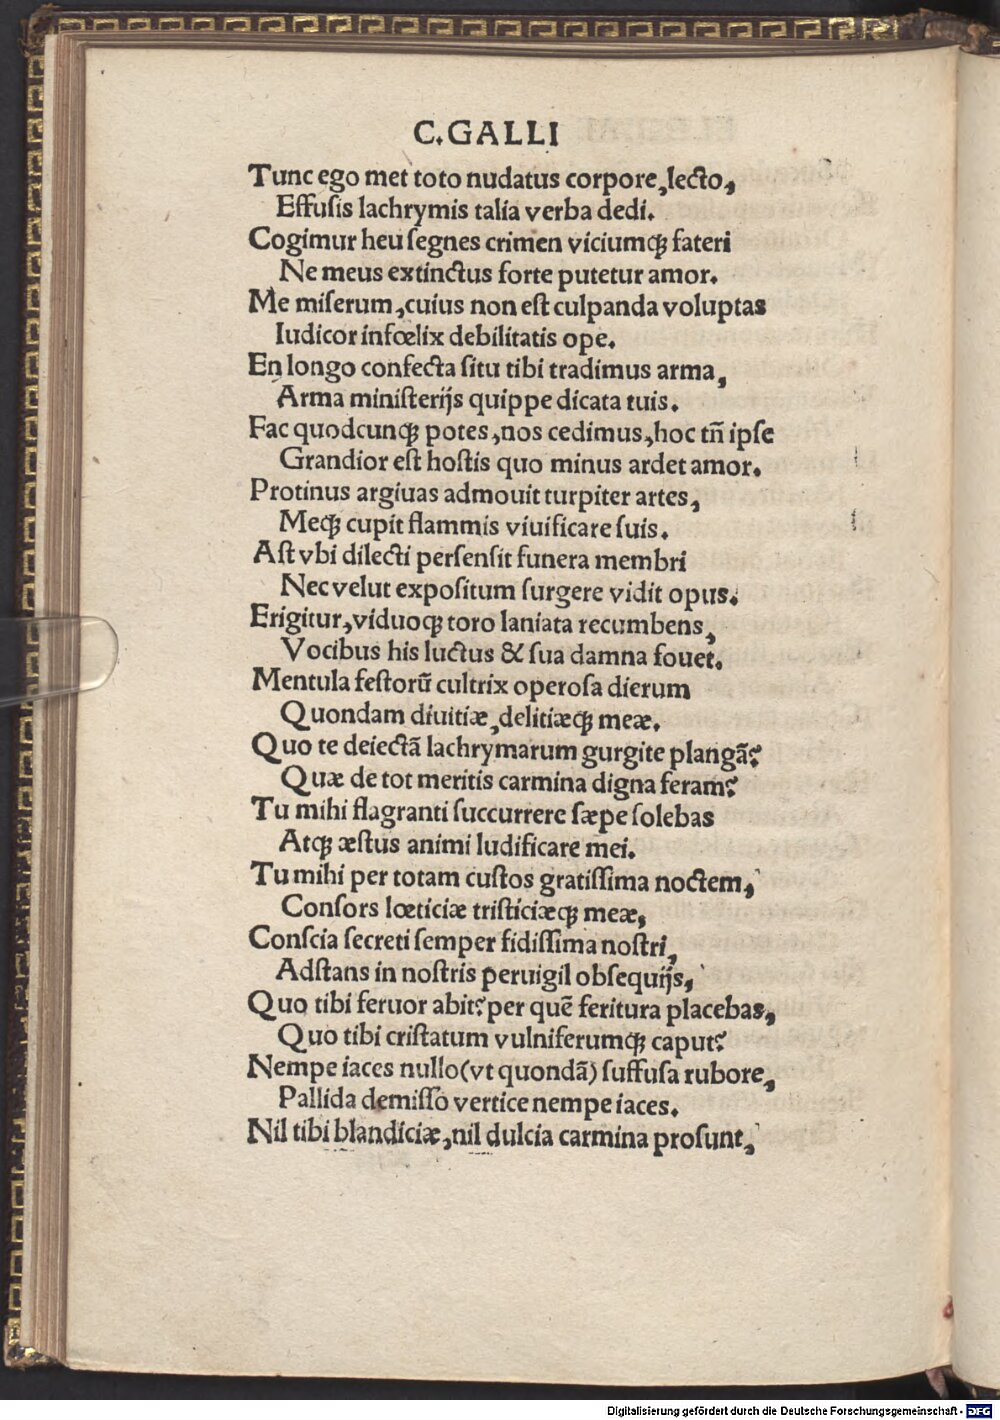 C.GALLI
Tunc ego met toto nudatus corpore,lecto,
Effusis lachrymis talia verba dedi.
Cogimur heu ſegnes crimen viciumqꝫ fateri
Ne meus extinctus forte putetur amor.
Me miſerum,cuius non eſt culpanda voluptas
Iudicor infœlix debilitatis ope.
En longo confecta ſitu tibi tradimus arma,
Arma miniſterijs quippe dicata tuis.
Fac quodcunqꝫ potes,nos cedimus,hoc tn̄ ipſe
Grandior eſt hoſtis quo minus ardet amor.
Protinus argiuas admouit turpiter artes,
Meqꝫ cupit flammis viuificare ſuis.
Aſt vbi dilecti perſenſit funera membri
Nec velut expoſitum ſurgere vidit opus.
Erigitur,viduoqꝫ toro laniata recumbens,
Vocibus his luctus & ſua damna fouet.
Mentula feſtorū cultrix operoſa dierum
Quondam diuitiæ,delitiæqꝫ meæ.
Quo te deiectā lachrymarum gurgite plangā?
Quæ de tot meritis carmina digna feram?
Tu mihi flagranti ſuccurrere ſæpe ſolebas
Atqꝫ æſtus animi ludificare mei.
Tu mihi per totam cuſtos gratiſſima noctem,
Conſors lœticiæ triſticiæqꝫ meæ,
Conſcia ſecreti ſemper fidiſſima noſtri,
Adſtans in noſtris peruigil obſequijs,
Quo tibi feruor abit?per quē feritura placebas,
Quo tibi criſtatum vulniferumqꝫ caput?
Nempe iaces nullo(vt quondā) ſuffuſa rubore,
Pallida demiſſo vertice nempe iaces.
Nil tibi blandiciæ,nil dulcia carmina proſunt,
Digitalisierung gefördert durch die Deutsche Forschungsgemeinschaft - DFG